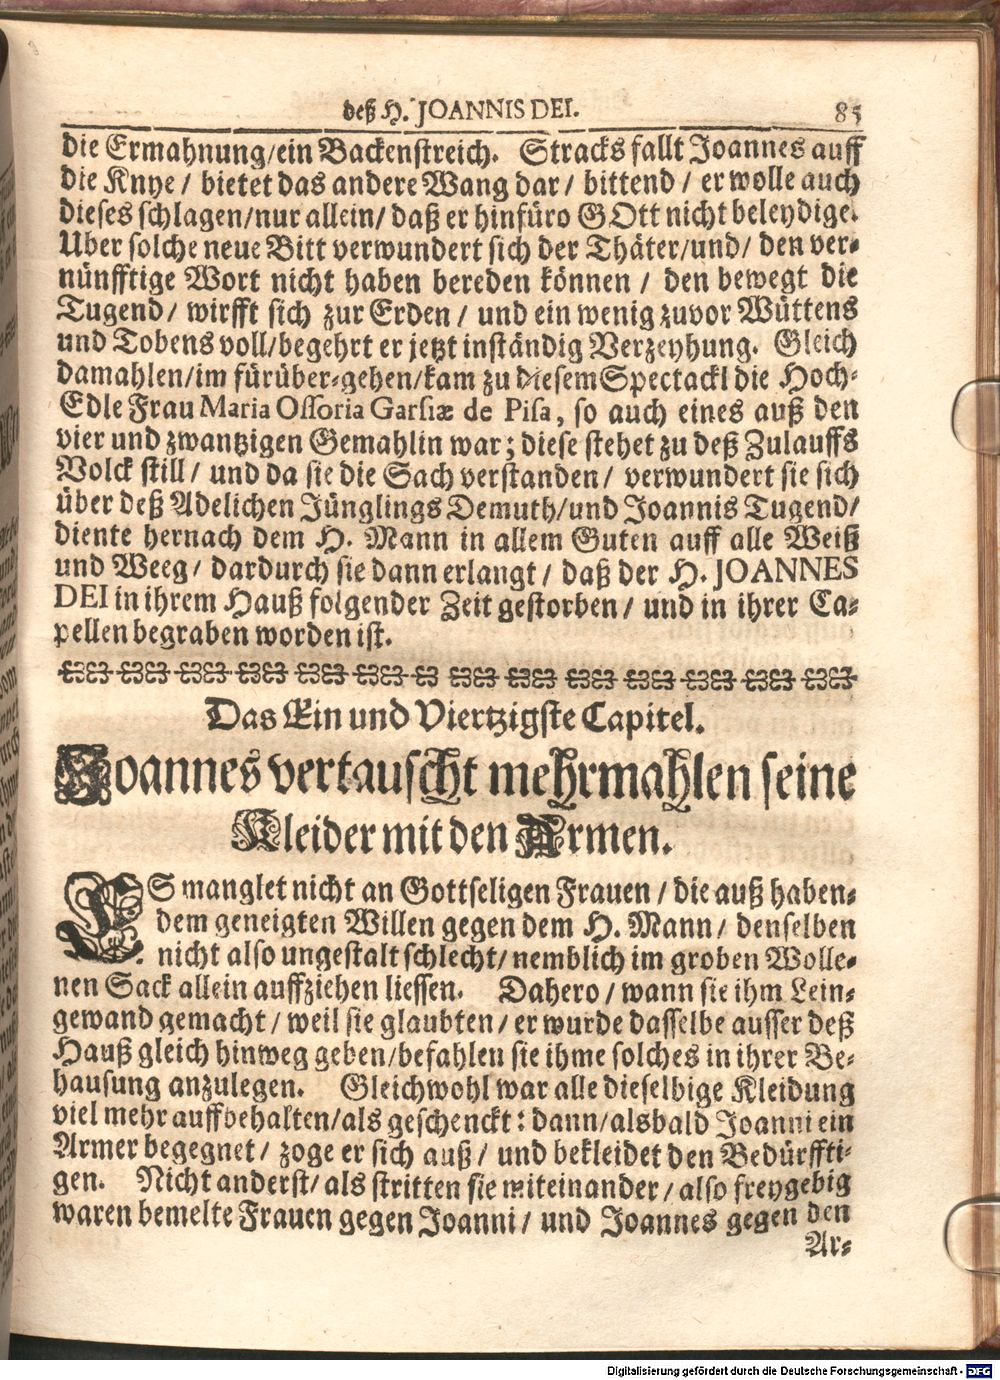 deß H. JOANNIS DEI. 85
die Ermahnung/ein Backenstreich. Stracks fallt Joannes auff
die Knye / bietet das andere Wang dar / bittend / er wolle auch
dieses schlagen/nur allein/ daß er hinfüro GOtt nicht beleydige.
Uber solche neue Bitt verwundert sich der Thäter/und/ den ver-
nünfftige Wort nicht haben bereden können / den bewegt die
Tugend / wirfft sich zur Erden / und ein wenig zuvor Wüttens
und Tobens voll/begehrt er jetzt inständig Verzeyhung. Gleich
damahlen/im fürüber-gehen/kam zu diesem Spectackl die Hoch-
Edle Frau Maria Ossoria Garsiæ de Pisa, so auch eines auß den
vier und zwantzigen Gemahlin war; diese stehet zu deß Zulauffs
Volck still / und da sie die Sach verstanden / verwundert sie sich
über deß Adelichen Jünglings Demuth/und Joannis Tugend/
diente hernach dem H. Mann in allem Guten auff alle Weiß
und Weeg / dardurch sie dann erlangt / daß der H. JOANNES
DEI in ihrem Hauß folgender Zeit gestorben / und in ihrer Ca-
pellen begraben worden ist.
Das Ein und Viertzigste Capitel.
Joannes vertauscht mehrmahlen seine
Kleider mit den Armen.
ES manglet nicht an Gottseligen Frauen / die auß haben-
dem geneigten Willen gegen dem H. Mann / denselben
nicht also ungestalt schlecht/ nemblich im groben Wolle-
nen Sack allein auffziehen liessen. Dahero / wann sie ihm Lein-
gewand gemacht / weil sie glaubten / er wurde dasselbe ausser deß
Hauß gleich hinweg geben/befahlen sie ihme solches in ihrer Be-
hausung anzulegen. Gleichwohl war alle dieselbige Kleidung
viel mehr auffbehalten/als geschenckt: dann/alsbald Joanni ein
Armer begegnet / zoge er sich auß / und bekleidet den Bedürffti-
gen. Nicht anderst/ als stritten sie miteinander / also freygebig
waren bemelte Frauen gegen Joanni / und Joannes gegen den
Ar-
Digitalisierung gefördert durch die Deutsche Forschungsgemeinschaft - DFG